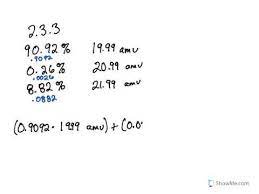 2.3.3
90.92% 19.99 amu
.9092
0.26% 20.99 amu
.0026
8.82% 21.99 amu
.0882
(0.9092 · 19.99 amu) + (0.0
ShowMe.com